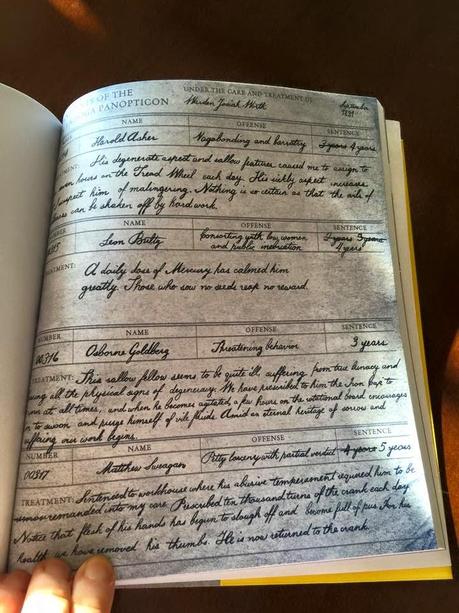 TS OF THE UNDER THE CARE AND TREATMENT OF
PANOPTICON Warden Josiah Wirth September
NAME OFFENSE SENTENCE
Harold Asher Vagabonding and barratry 3 years 4 years
His degenerate aspect and sallow features caused me to assign to
hours on the Tread Wheel each day. His sickly aspect increases
suspect him of malingering. Nothing is so certain as that the evils of
can be shaken off by hard work.
NAME OFFENSE SENTENCE
Leon Bultz Consorting with low women
and public inebriation 4 years
TREATMENT: A daily dose of Mercury has calmed him
greatly. Those who sow no seeds reap no reward.
NUMBER NAME OFFENSE SENTENCE
00316 Osborne Goldberg Threatening behavior 3 years
TREATMENT: This sallow fellow seems to be quite ill, suffering from true lunacy and
all the physical signs of degeneracy. We have prescribed to him the iron bar to
at all times, and when he becomes agitated, a few hours on the rotational board encourages
to swoon and purge himself of vile fluids. Amid an eternal heritage of sorrow and
suffering our work begins.
NUMBER NAME OFFENSE SENTENCE
00317 Matthew Petty larceny with partial verdict 4 years 5 years
TREATMENT: Sentenced to workhouse where his abusive temperament required him to be
remanded into my care. Prescribed ten thousand turns of the crank each day.
Notice that flesh of his hands has begun to slough off and become full of pus. For his
health we have removed his thumbs. He is now returned to the crank.